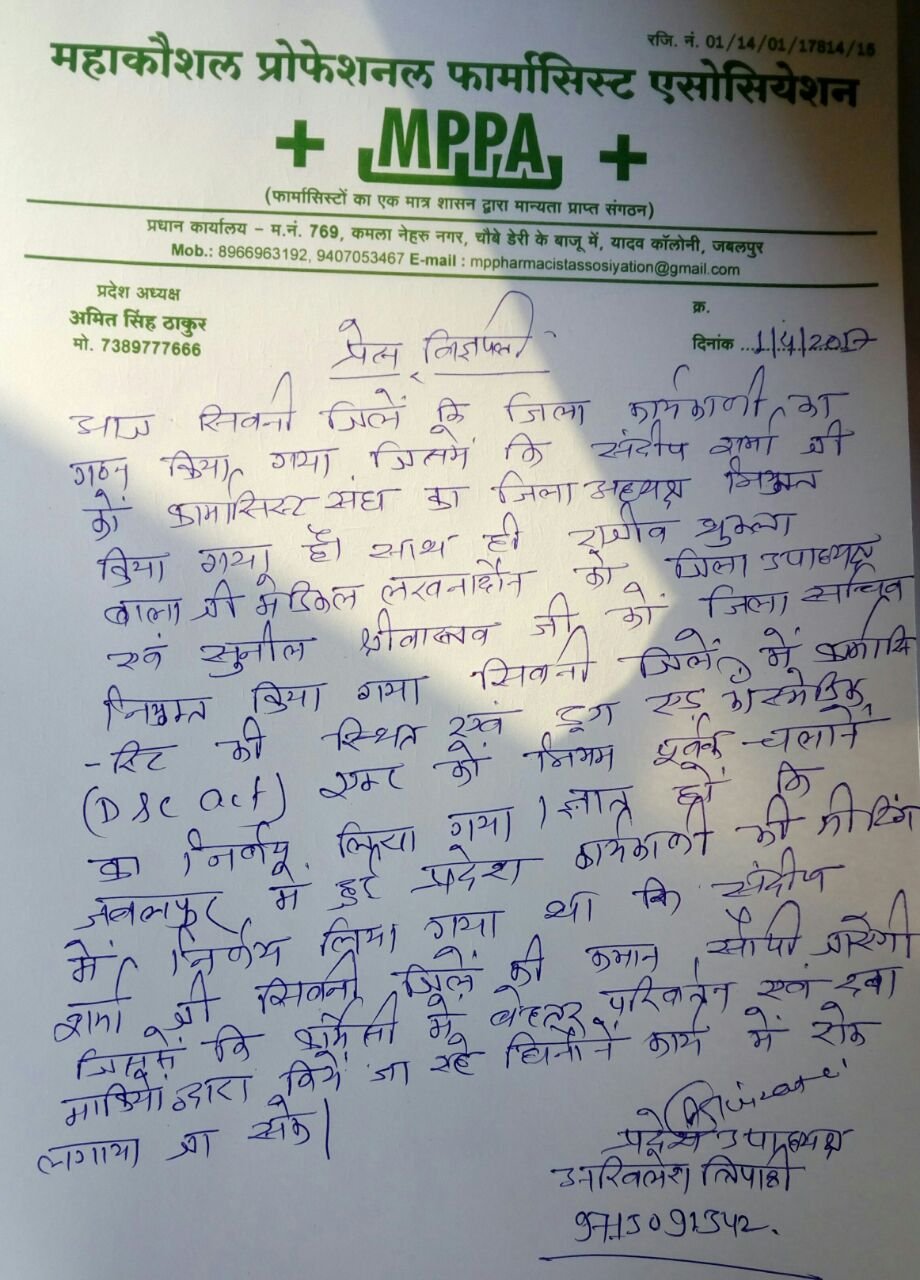 रजि. नं. 01/14/01/17814/15
महाकौशल प्रोफेशनल फार्मासिस्ट एसोसियेशन
+ MPPA +
(फार्मासिस्टों का एक मात्र शासन द्वारा मान्यता प्राप्त संगठन)
प्रधान कार्यालय – म.नं. 769, कमला नेहरु नगर, चौबे डेरी के बाजू में, यादव कॉलोनी, जबलपुर
Mob.: 8966963192, 9407053467 E-mail : mppharmacistassosiyation@gmail.com
प्रदेश अध्यक्ष
अमित सिंह ठाकुर
मो. 7389777666
क्र.
दिनांक 1/4/2017
प्रेस विज्ञप्ती
आज सिवनी जिलें कि जिला कार्यकाणी का
गठन किया गया जिसमें कि संदीप शर्मा जी
कों फार्मासिस्ट संघ का जिला अध्यक्ष नियुक्त
किया गया है। साथ ही राजीव शुक्ला
बाला जी मेडिकल लखनादौन को जिला उपाध्यक्ष
एवं सुनील श्रीवास्तव जी कों जिला सचिव
नियुक्त किया गया सिवनी जिलें में फार्मासि
-स्टि की स्थित एवं ड्रग एंड कॉस्मेटिक
(D&C act) एक्ट कों नियम पूर्वक चलानें
का निर्णय लिया गया। ज्ञात हों कि
जबलपुर में हुए प्रदेश कार्यकाणी की मीटिंग
में निर्णय लिया गया था कि संदीप
शर्मा जी सिवनी जिलें की कमान सौपी जाऐगी
जिसमें कि फार्मेसी में बेहतर परिवर्तन एवं दवा
माफियों द्वारा कियें जा रहे घिनौनें कार्य में रोक
लगाया जा सकें।
प्रदेश उपाध्यक्ष
अखिलेश त्रिपाठी
9715091342.